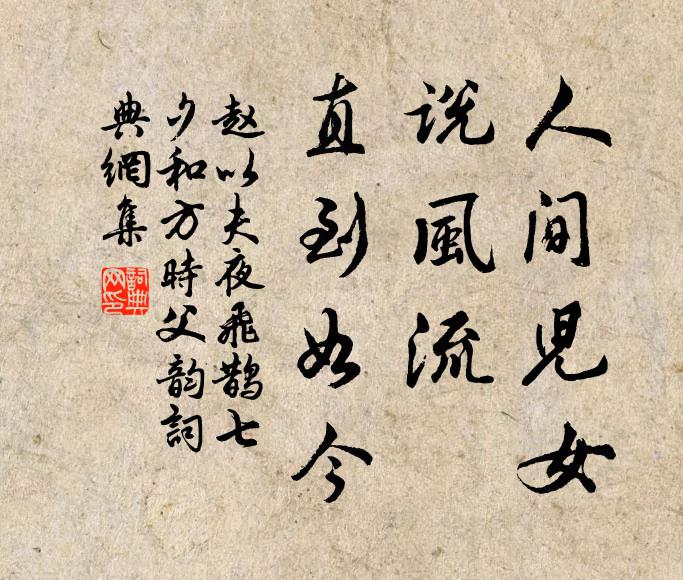 人間児女
說風流
直到如今
赵以夫夜飛鵲七
夕和方時父韵詞
典網集
詞典网印